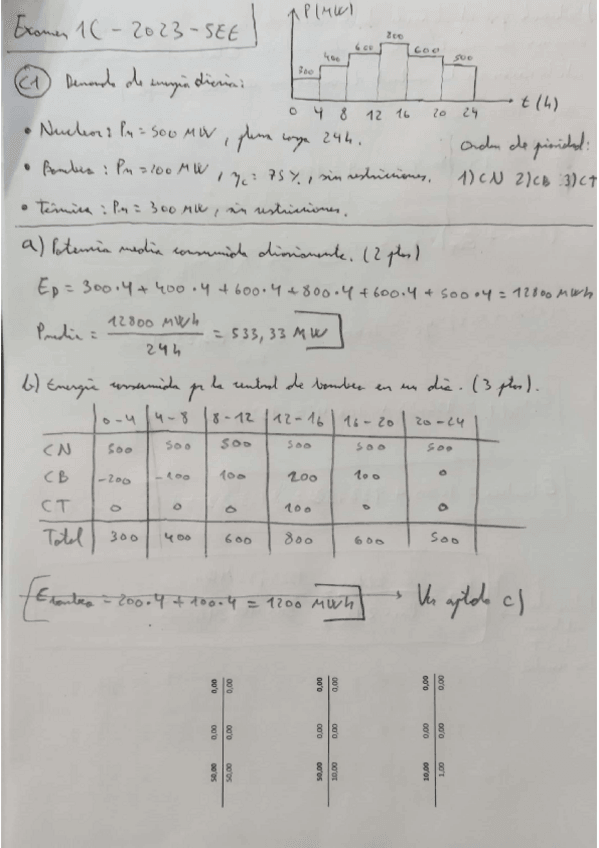 Examen 1C - 2023 - SEE
P(MW)
300 400 600 800 600 500
0 4 8 12 16 20 24 t(h)
C1 Demanda de energía diaria:
• Nuclear: Pn = 500 MW, plena carga 24h.
• Bombeo: Pn = 200 MW, ηc = 75%, sin restricciones.
• Térmica: Pn = 300 MW, sin restricciones.
Orden de prioridad:
1) CN 2) CB 3) CT
a) Potencia media consumida diariamente. (2 ptos)
ED = 300·4 + 400·4 + 600·4 + 800·4 + 600·4 + 500·4 = 12800 MWh
Pmedia = 12800 MWh / 24h = 533,33 MW
b) Energía consumida por la central de bombeo en un día. (3 ptos).
0-4 4-8 8-12 12-16 16-20 20-24
CN 500 500 500 500 500 500
CB -200 -100 100 200 100 0
CT 0 0 0 100 0 0
Total 300 400 600 800 600 500
Ebombeo = 200·4 + 100·4 = 1200 MWh → Ver aptdo c)
50,00 0,00 0,00
50,00 0,00 0,00
10,00 0,00 0,00
10,00 0,00 0,00
10,00 0,00 0,00
1,00 0,00 0,00